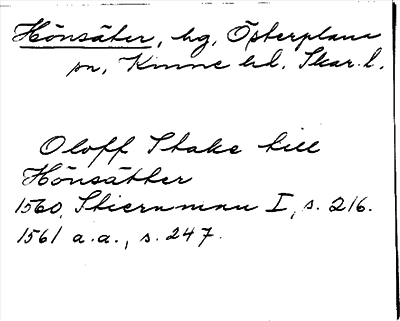 Hönsäter, hg, Österplana
sn, Kinne hd. Skar. l.
Oloff Stake till
Hönsätter
1560, Stiernman I, s. 216.
1561 a.a., s. 247.